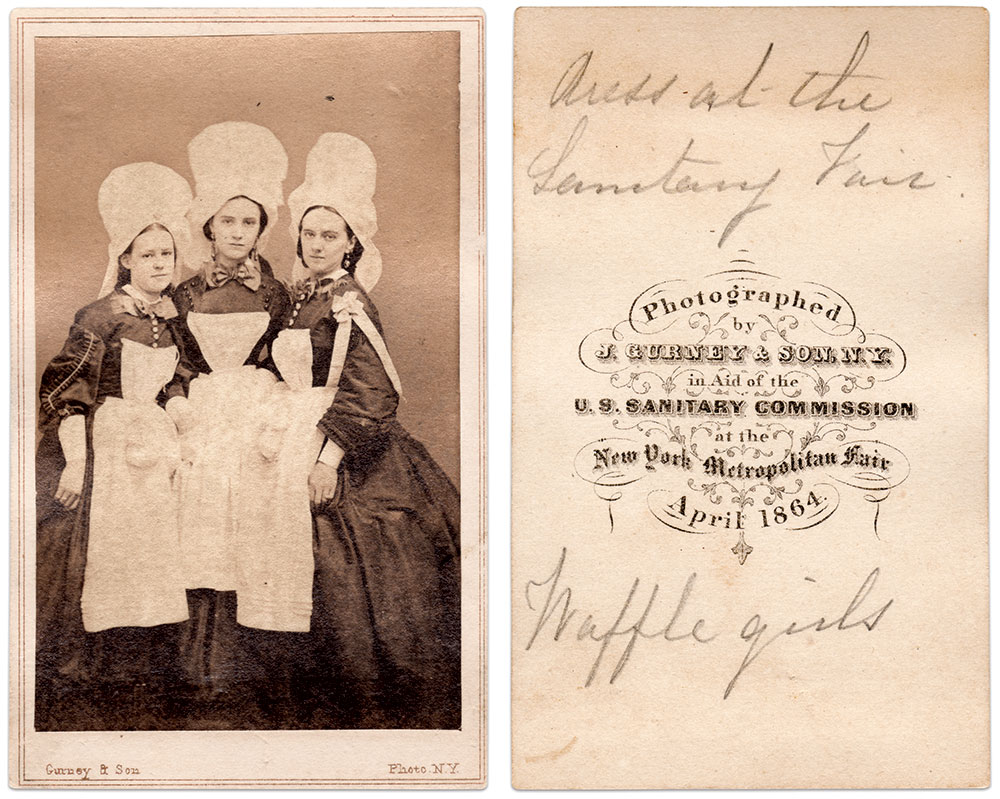 Gurney & Son
Photo. N.Y.
dress at the
Sanitary Fair.
Photographed
by
J. GURNEY & SON, N.Y.
in Aid of the
U.S. SANITARY COMMISSION
at the
New York Metropolitan Fair
April 1864.
Waffle girls